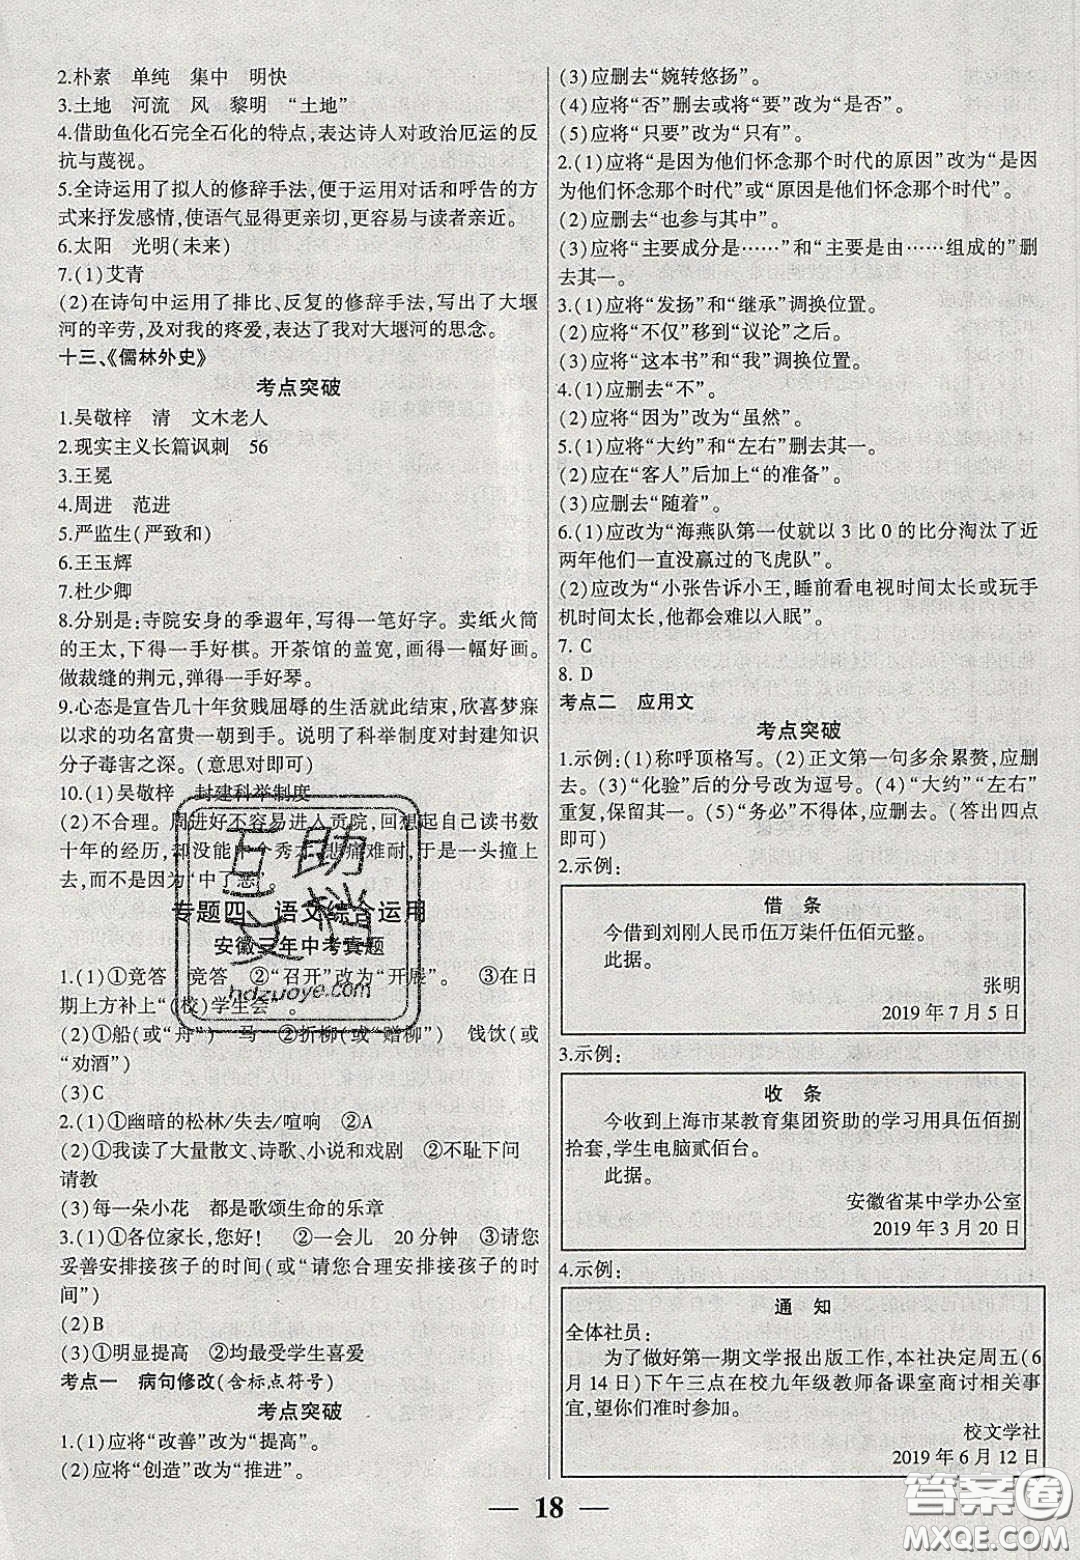 2.朴素　单纯　集中　明快
3.土地　河流　风　黎明　“土地”
4.借助鱼化石完全石化的特点,表达诗人对政治厄运的反
抗与蔑视。
5.全诗运用了拟人的修辞手法,便于运用对话和呼告的方
式来抒发感情,使语气显得更亲切,更容易与读者亲近。
6.太阳　光明(未来)
7.(1)艾青
(2)在诗句中运用了排比、反复的修辞手法,写出了大堰
河的辛劳,及对我的疼爱,表达了我对大堰河的思念。
十三、《儒林外史》
考点突破
1.吴敬梓　清　文木老人
2.现实主义长篇讽刺　56
3.王冕
4.周进　范进
5.严监生(严致和)
6.王玉辉
7.杜少卿
8.分别是:寺院安身的季遐年,写得一笔好字。卖纸火筒
的王太,下得一手好棋。开茶馆的盖宽,画得一幅好画。
做裁缝的荆元,弹得一手好琴。
9.心态是宣告几十年贫贱屈辱的生活就此结束,欣喜梦寐
以求的功名富贵一朝到手。说明了科举制度对封建知识
分子毒害之深。(意思对即可)
10.(1)吴敬梓　封建科举制度
(2)不合理。周进好不容易进人贡院,回想起自己读书数
十年的经历,却没能中个秀才,悲痛难耐,于是一头撞上
去,而不是因为“中了恶”。
专题四　语文综合运用
安徽三年中考真题
1.(1)①竟答　竞答　②“召开”改为“开展”。　③在日
期上方补上“(校)学生会”。
(2)①船(或“舟”)　马　②折柳(或“赠柳”)　饯饮(或
“劝酒”)
(3)C
2.(1)①幽暗的松林/失去/喧响　②A
(2)①我读了大量散文、诗歌、小说和戏剧　②不耻下问
请教
(3)每一朵小花　都是歌颂生命的乐章
3.(1)①各位家长,您好!　②一会儿　20分钟　③请您
妥善安排接孩子的时间(或“请您合理安排接孩子的时
间”)
(2)B
(3)①明显提高　②均最受学生喜爱
考点一　病句修改(含标点符号)
考点突破
1.(1)应将“改善”改为“提高”。
(2)应将“创造”改为“推进”。
(3)应删去“婉转悠扬”。
(4)应将“否”删去或将“要”改为“是否”。
(5)应将“只要”改为“只有”。
2.(1)应将“是因为他们怀念那个时代的原因”改为“是因
为他们怀念那个时代”或“原因是他们怀念那个时代”。
(2)应删去“也参与其中”。
(3)应将“主要成分是……”和“主要是由……组成的”删
去其一。
3.(1)应将“发扬”和“继承”调换位置。
(2)应将“不仅”移到“议论”之后。
(3)应将“这本书”和“我”调换位置。
4.(1)应删去“不”。
(2)应将“因为”改为“虽然”。
5.(1)应将“大约”和“左右”删去其一。
(2)应在“客人”后加上“的准备”。
(3)应删去“随着”。
6.(1)应改为“海燕队第一仗就以3比0的比分淘汰了近
两年他们一直没赢过的飞虎队”。
(2)应改为“小张告诉小王,睡前看电视时间太长或玩手
机时间太长,他都会难以入眠”。
7. C
8. D
考点二　应用文
考点突破
1.示例:(1)称呼顶格写。(2)正文第一句多余累赘,应删
去。(3)“化验”后的分号改为逗号。(4)“大约”“左右”
重复,保留其一。(5)“务必”不得体,应删去。(答出四点
即可)
2.示例:
借　条
今借到刘刚人民币伍万柒仟伍佰元整。
此据。
张明
2019年7月5日
3.示例:
收　条
今收到上海市某教育集团资助的学习用具伍佰捌
拾套,学生电脑贰佰台。
此据。
安徽省某中学办公室
2019年3月20日
4.示例:
通　知
全体社员:
为了做好第一期文学报出版工作,本社决定周五(6
月14日)下午三点在校九年级教师备课室商讨相关事
宜,望你们准时参加。
校文学社
2019年6月12日
18
互助
文档
hdzuoye.com
答案圈
MXQE.COM